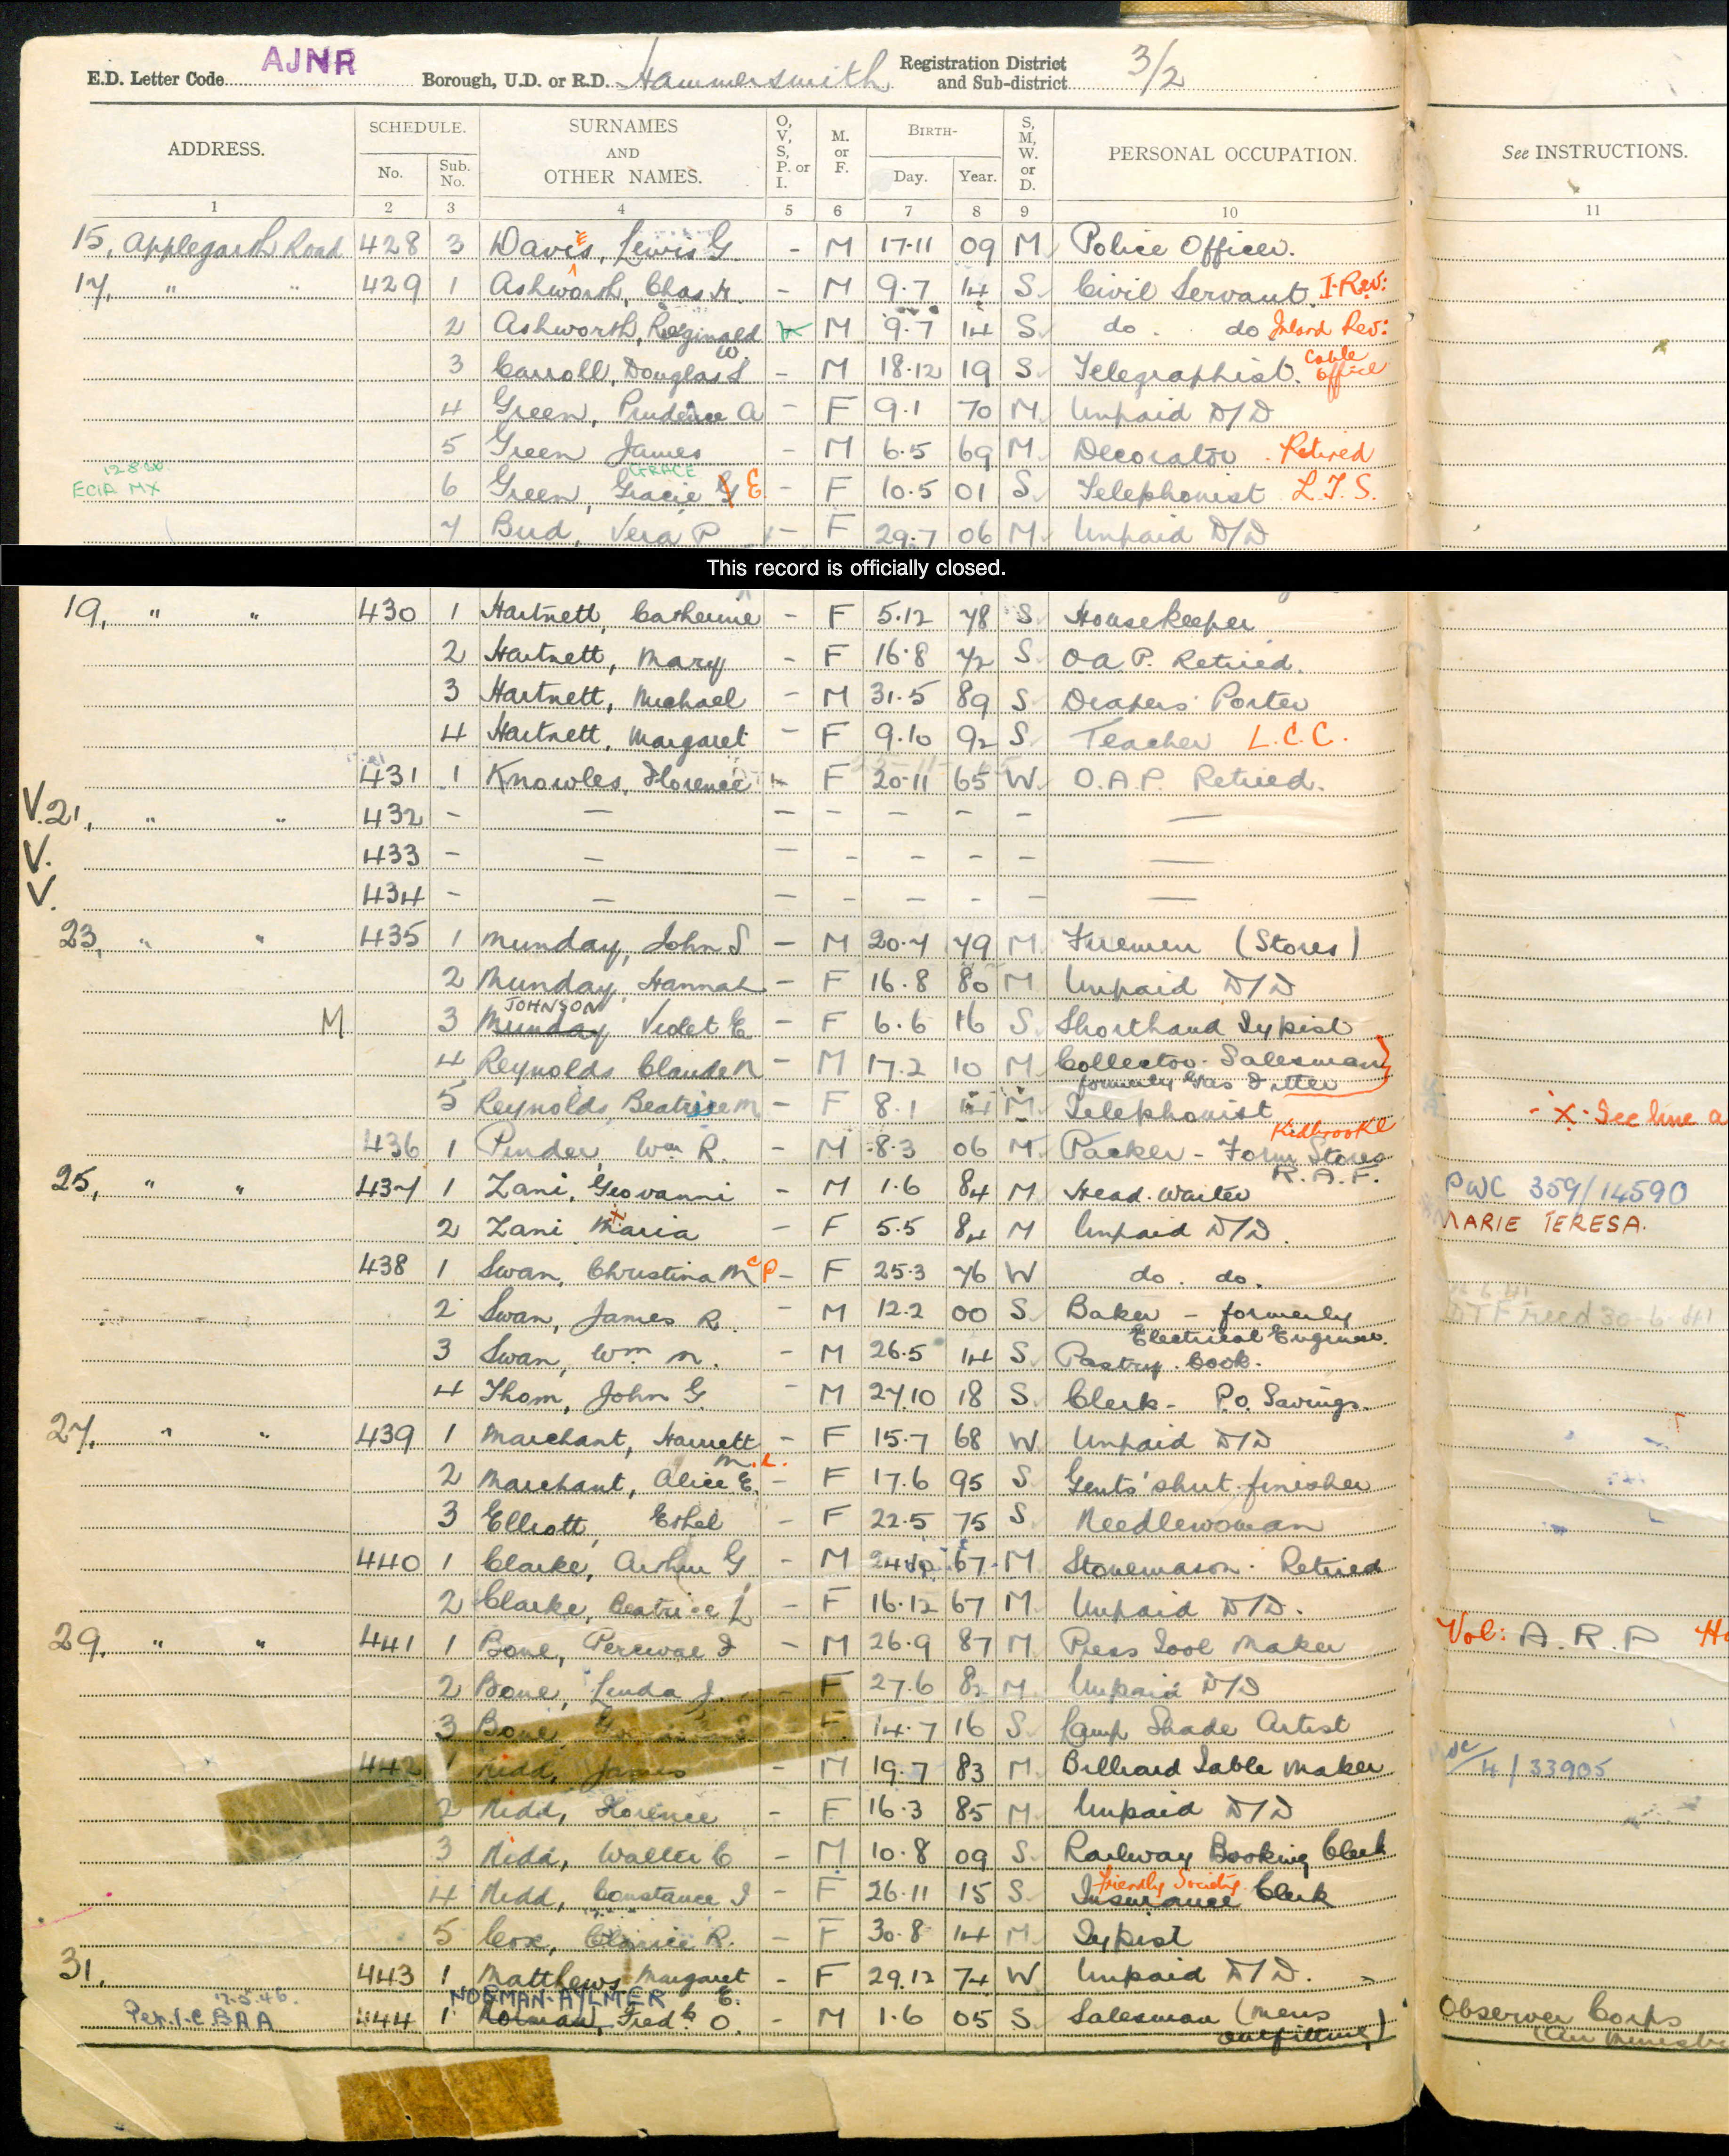 E.D. Letter Code AJNR Borough, U.D. or R.D. Hammersmith Registration District and Sub-district 3/2
ADDRESS. SCHEDULE. No. Sub. No. SURNAMES AND OTHER NAMES. O, V, S, P. or I. M. or F. BIRTH- Day. Year. S, M, W. or D. PERSONAL OCCUPATION. See INSTRUCTIONS.
1 2 3 4 5 6 7 8 9 10 11
15, Applegarth Road 428 3 Davies, Lewis G. - M 17.11 09 M Police Officer.
17, " " 429 1 Ashworth, Chas H. - M 9.7 14 S. Civil Servant. I. Rev:
2 Ashworth, Reginald W. M 9.7 14 S do. do Inland Rev:
3 Carroll, Douglas S - M 18.12 19 S. Telegraphist. Cable Office
4 Green, Prudence A - F 9.1 70 M. Unpaid D/D
5 Green James - M 6.5 69 M. Decorator. Retired
ECIA MX 6 Green, Gracie GRACE E - F 10.5 01 S. Telephonist L.T.S.
7 Bud, Vera P - F 29.7 06 M Unpaid D/D
This record is officially closed.
19, " " 430 1 Hartnett, Catherine - F 5.12 78 S. Housekeeper
2 Hartnett, Mary - F 16.8 72 S. O A P. Retired.
3 Hartnett, Michael - M 31.5 89 S Drapers Porter
4 Hartnett, Margaret - F 9.10 92 S. Teacher L.C.C.
431 1 Knowles, Florence - F 20.11 65 W. O.A.P. Retired.
V. 21, " " 432 - - - - - - - -
V. 433 - - - - - - - -
V. 434 - - - - - - - -
23, " " 435 1 Munday, John S - M 20.7 79 M. Firemen (Stores)
2 Munday, Hannah - F 16.8 80 M Unpaid D/D
JOHNSON
M 3 Munday Violet E - F 6.6 16 S. Shorthand Typist
4 Reynolds Claude N - M 17.2 10 M. Collector-Salesman
formerly Gas Fitter
5 Reynolds, Beatrice M - F 8.1 14 M. Telephonist - X. See line a
436 1 Pinder, Wm R. - M 8.3 06 M. Packer - Form Stores Kidbrooke
R.A.F.
25, " " 437 1 Zani, Geovanni - M 1.6 84 M Head Waiter PWC 359/14590
2 Zani Maria - F 5.5 84 M Unpaid D/D. MARIE TERESA.
438 1 Swan, Christina M C P - F 25.3 76 W do. do.
2 Swan, James R. - M 12.2 00 S Baker - formerly
Electrical Engineer.
3 Swan, Wm N. - M 26.5 14 S. Pastry Cook.
4 Thom, John G. - M 27.10 18 S. Clerk - P.O. Savings.
27, " " 439 1 Marchant, Harriett - F 15.7 68 W. Unpaid D/D
M.L.
2 Marchant, Alice E. - F 17.6 95 S. Gents' shirt finisher
3 Elliott, Ethel - F 22.5 75 S Needlewoman
440 1 Clarke, Arthur G - M 67 M Stonemason. Retired
2 Clarke, Beatrice L - F 16.12 67 M. Unpaid D/D.
29, " " 441 1 Bone, Percival F - M 26.9 87 M. Press Tool Maker Vol: A.R.P
2 Bone, Linda J. - F 27.6 82 M. Unpaid D/D
3 Bone - F. 14.7 16 S. Lamp Shade Artist
442 1 Nidd, James - M 19.7 83 M. Billiard Table Maker 4/33905
2 Nidd, Florence - F 16.3 85 M. Unpaid D/D
3 Nidd, Walter C - M 10.8 09 S. Railway Booking Clerk
4 Nidd, Constance I - F 26.11 15 S. Insurance Clerk Friendly Society
5 Cox, Clarice R. - F 30.8 14 M. Typist
31. 443 1 Matthews Margaret E. - F 29.12 74 W Unpaid D/D.
17.5.46. NORMAN-AYLMER
Per. 1-C BAA 444 1 Norman, Fredk O. - M 1.6 05 S. Salesman (Mens Observer Corps
outfitting)